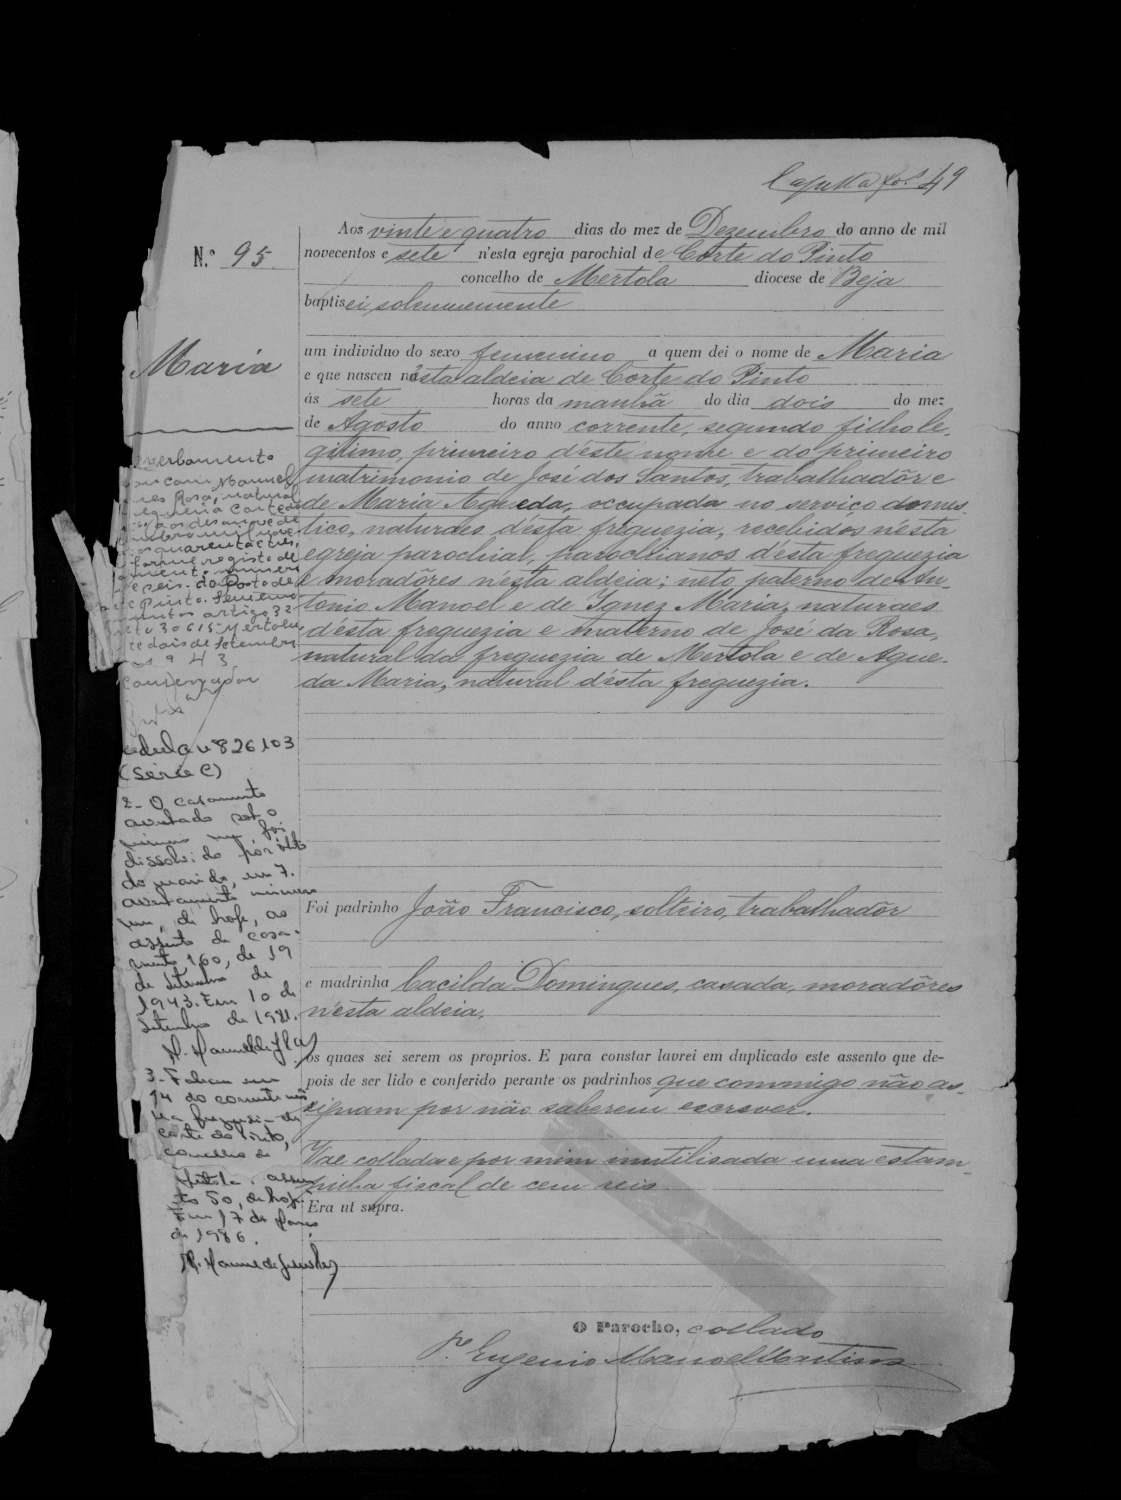 49
Aos vinte e quatro dias do mez de Dezembro do anno de mil
novecentos e sete n'esta egreja parochial de Corte do Pinto
concelho de Mertola diocese de Beja
baptisei solemnemente
N.º 95
um individuo do sexo femenino a quem dei o nome de Maria
e que nasceu n'ésta aldeia de Corte do Pinto
ás sete horas da manhã do dia dois do mez
de Agosto do anno corrente, segundo filho le-
gitimo, primeiro déste nome e do primeiro
matrimonio de José dos Santos, trabalhadôr e
de Maria Agueda, occupada no serviço domes-
tico, naturaes d'ésta freguezia, recebidos n'ésta
egreja parochial, parochianos d'ésta freguezia
e moradôres n'ésta aldeia; neto paterno de An-
tonio Manoel e de Ignez Maria, naturaes
d'ésta freguezia e materno de José da Rosa,
natural da freguezia de Mertola e de Ague-
da Maria, natural d'ésta freguezia.
Foi padrinho João Francisco, solteiro, trabalhadôr
e madrinha Cacilda Domingues, casada, moradôres
n'esta aldeia,
os quaes sei serem os proprios. E para constar lavrei em duplicado este assento que de-
pois de ser lido e conferido perante os padrinhos que commigo não as-
signam por não saberem escrever.
Vae collada e por mim inutilisada uma estam-
pilha fiscal de cem reis.
Era ut supra.
O Parocho, collado
P.e Eugenio Manoel Martins
Maria
Manuel
Rosa, natural
quarenta e tres,
registo de
do Posto de
Pinto.
artigo 32
30615 Mertola
dois de Setembro
943
Conservador
cedula nº 826103
(Série C)
2- O casamento
averbado sob o
numero um foi
dissolvido por óbito
do marido, em 7.
averbamento numero
um, de hoje, ao
assento de casa-
mento 160, de 19
de Setembro de
1943. Em 10 de
Setembro de 1981.
3- Faleceu em
14 do corrente mês
na freguesia de
Corte do Pinto,
concelho de
Mértola. assen-
to 50, de hoje.
Em 17 de
de 1986.